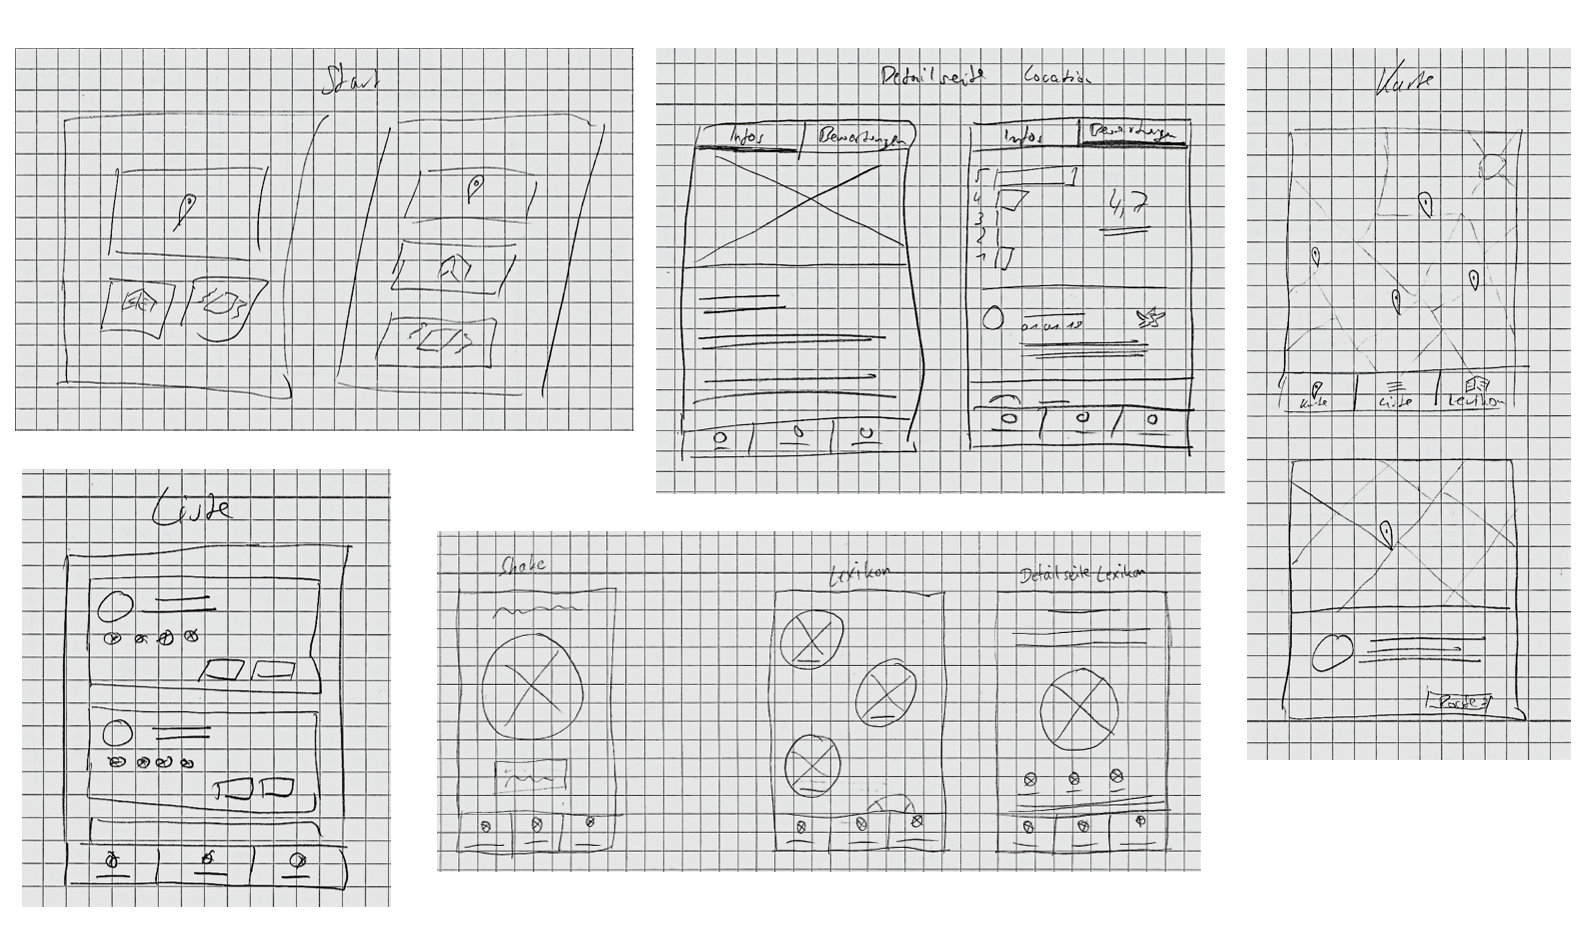 Start
Detailseite Location
Infos
Bewertungen
Infos
Bewertungen
5
4
3
2
1
4,7
01.01.18
Karte
Karte
Liste
Lexikon
Route
Liste
Shake
Lexikon
Detailseite Lexikon